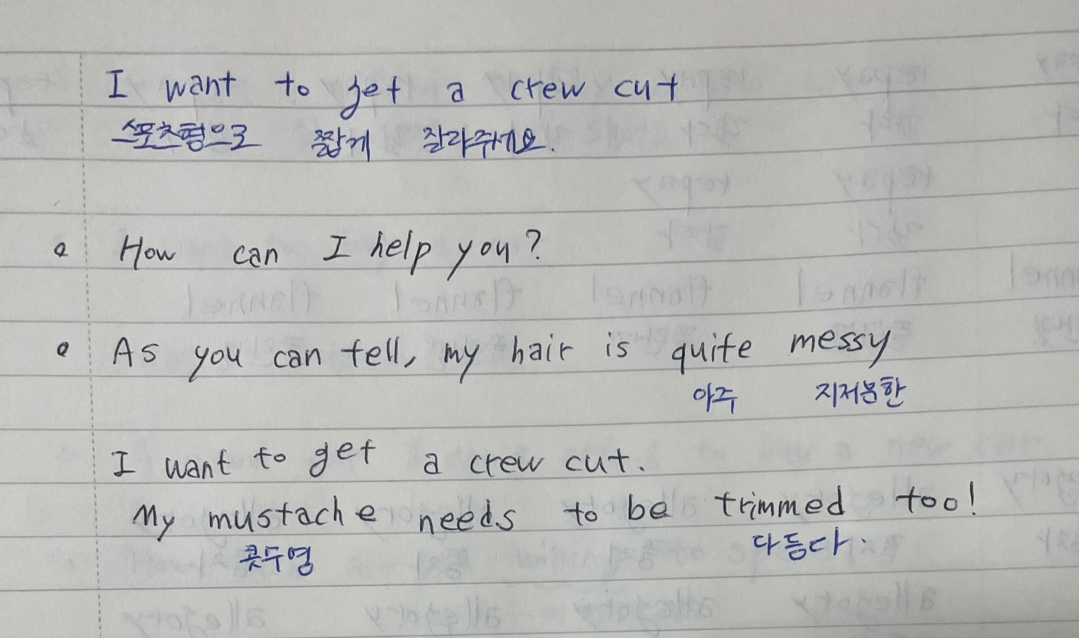 I want to get a crew cut
스포츠형으로 짧게 잘라주세요.
How can I help you?
As you can tell, my hair is quite messy
아주 지저분한
I want to get a crew cut.
My mustache needs to be trimmed too!
콧수염 다듬다.